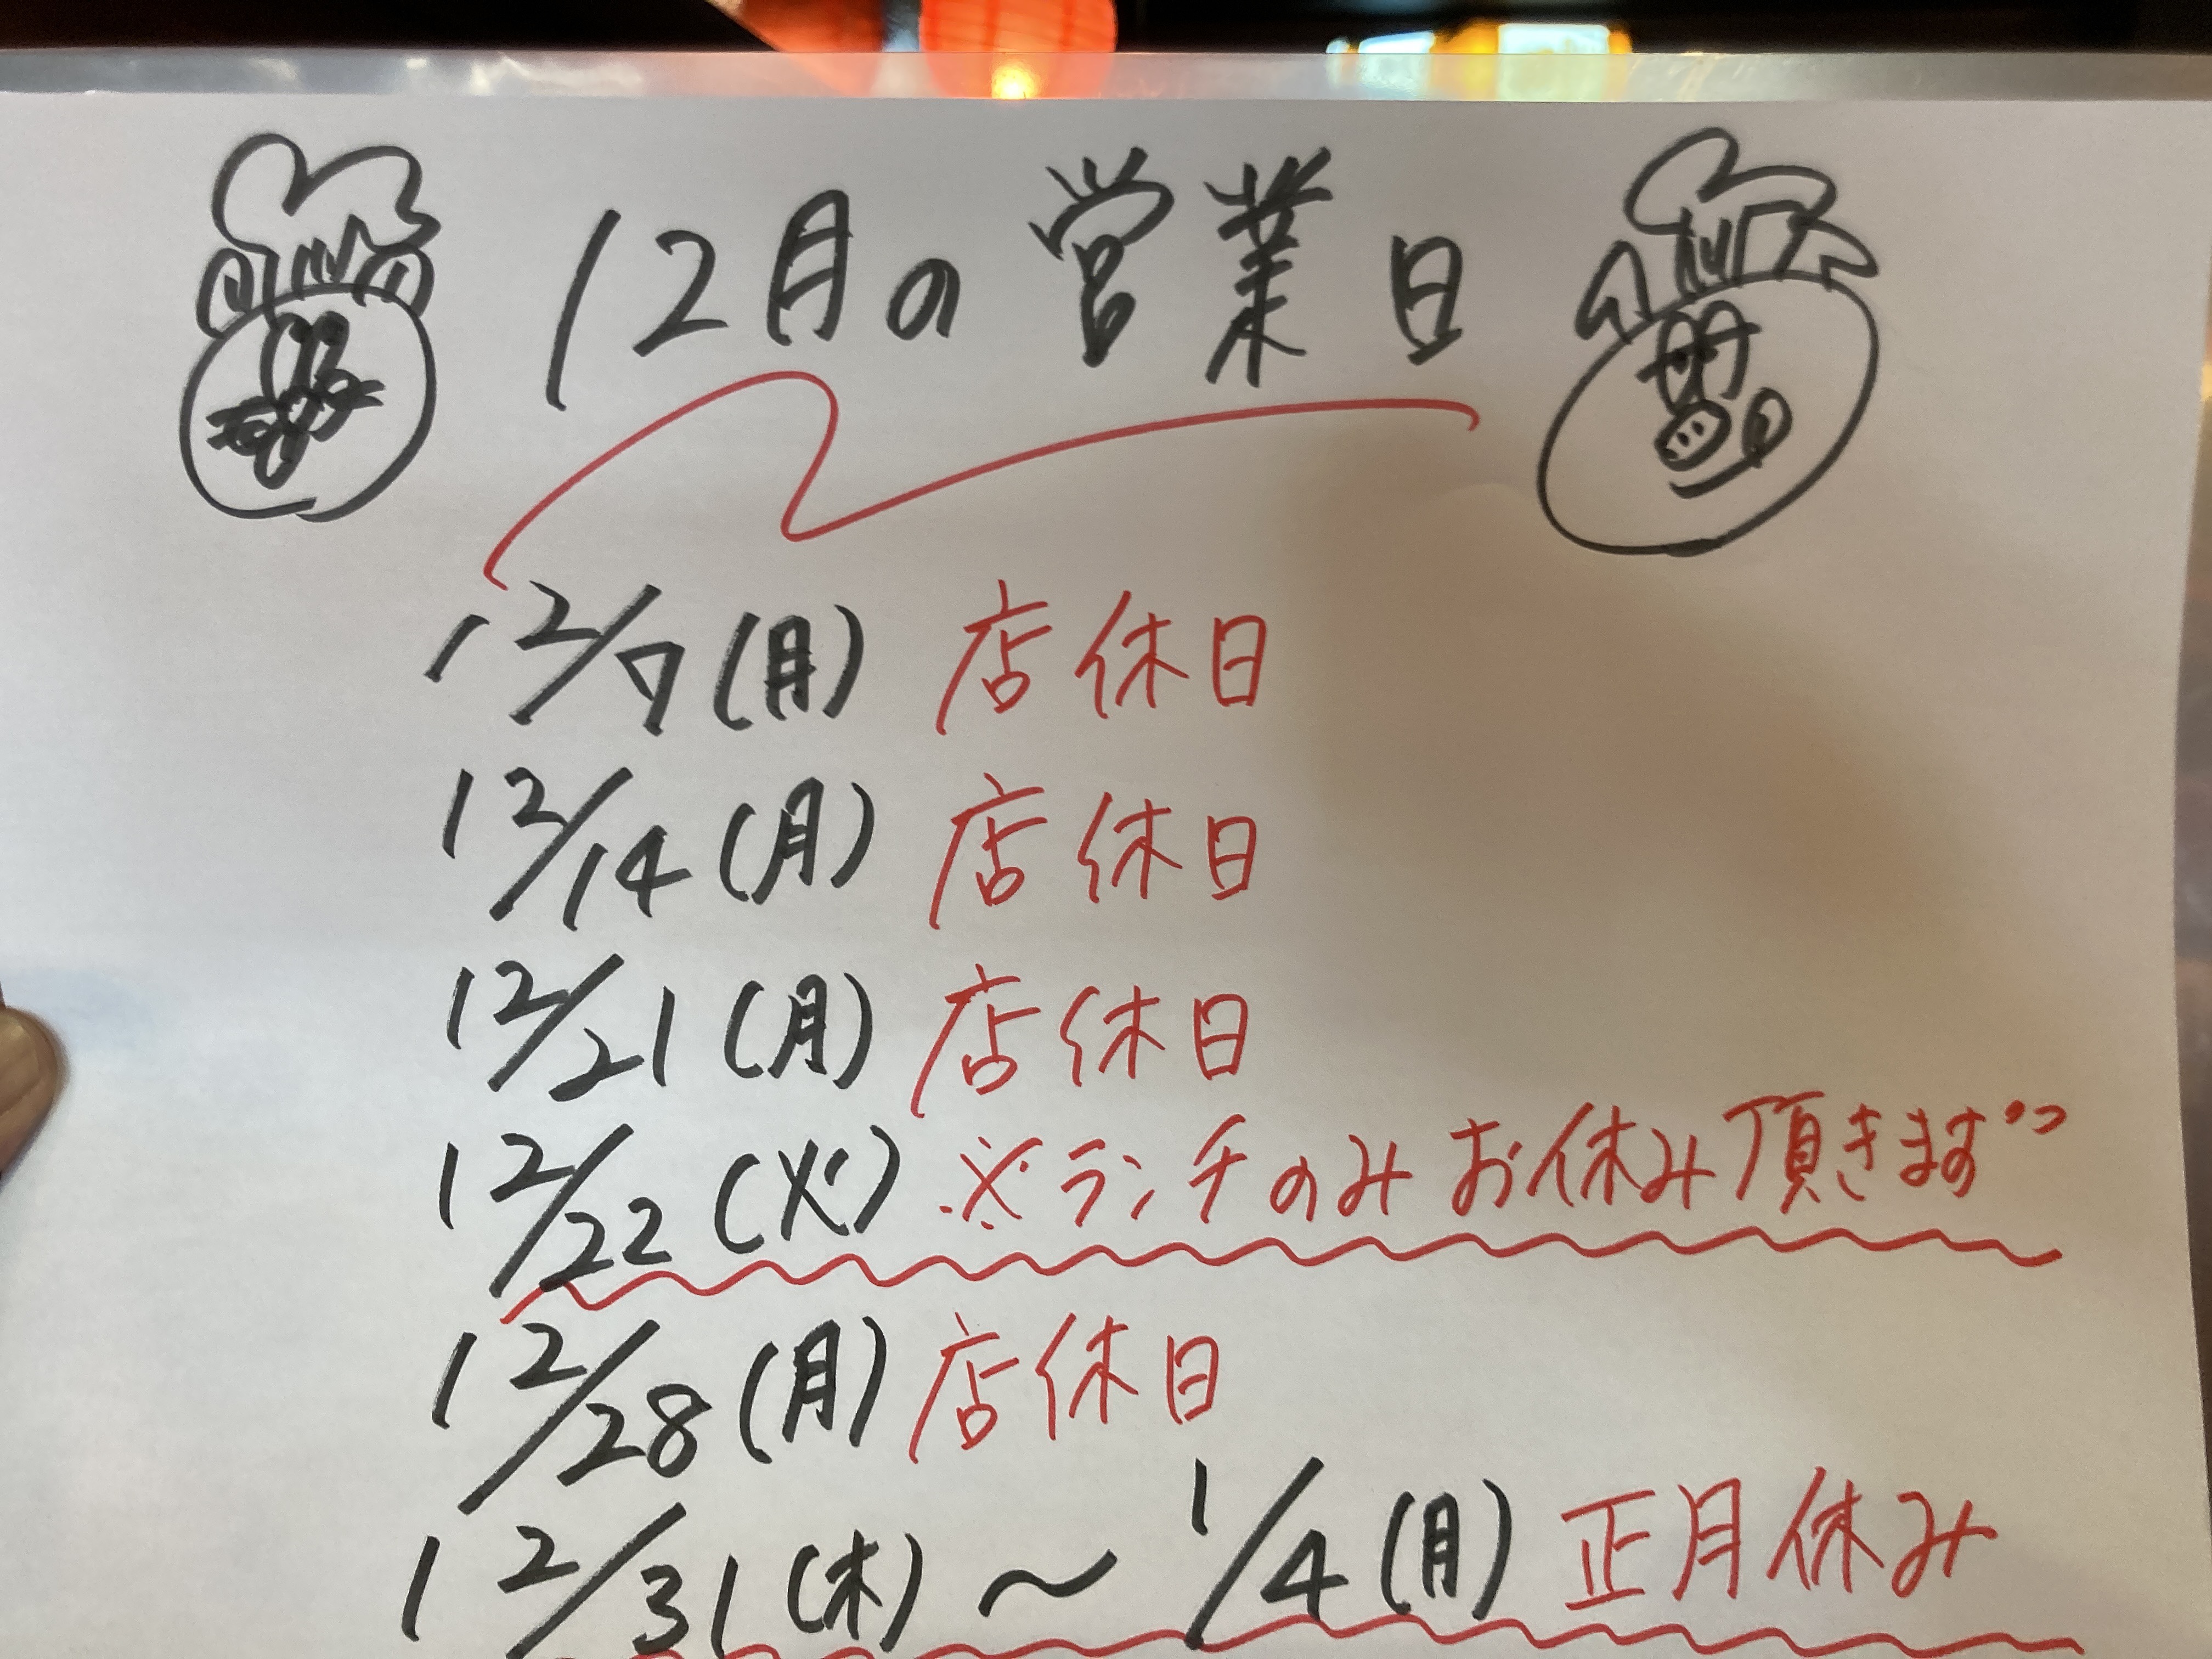 12月の営業日
12/7(月) 店休日
12/14(月) 店休日
12/21(月) 店休日
12/22(火) ※ランチのみお休み頂きます"
12/28(月) 店休日
12/31(木)～1/4(月) 正月休み